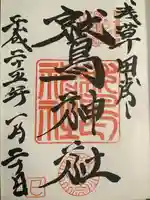 浅草田甫
鷲神社
平成二十五年一月二日